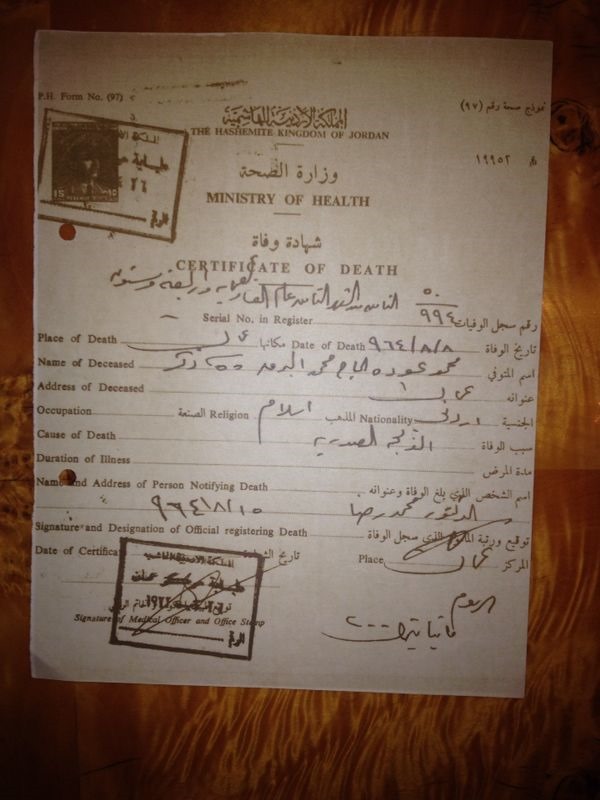 P.H. Form No. (97)
نموذج صحة رقم (٩٧)
المملكة الأردنية الهاشمية
THE HASHEMITE KINGDOM OF JORDAN
١٩٩٥٢
وزارة الصحة
MINISTRY OF HEALTH
شهادة وفاة
CERTIFICATE OF DEATH
الثامن من الشهر الثامن عام
٥٠
٩٩٤
Serial No. in Register رقم سجل الوفيات
Place of Death عمان مكانها Date of Death ٩٦٤/٨/٨ تاريخ الوفاة
Name of Deceased محمد عوده الحاج محمد ذكر اسم المتوفي
Address of Deceased عمان عنوانه
Occupation الصنعة Religion اسلام المذهب Nationality اردني الجنسية
Cause of Death الذبحة الصدرية سبب الوفاة
Duration of Illness مدة المرض
Name and Address of Person Notifying Death اسم الشخص الذي بلغ الوفاة وعنوانه
٩٦٤/٨/١٥ الدكتور محمد رضا
Signature and Designation of Official registering Death توقيع ورتبة الذي سجل الوفاة
Date of Certificate تاريخ Place عمان المركز
المملكة الاردنية الهاشمية
عمان
الرقم
Signature of Medical Officer and Office Stamp
الرسوم
٢٠٠
15
الرقم